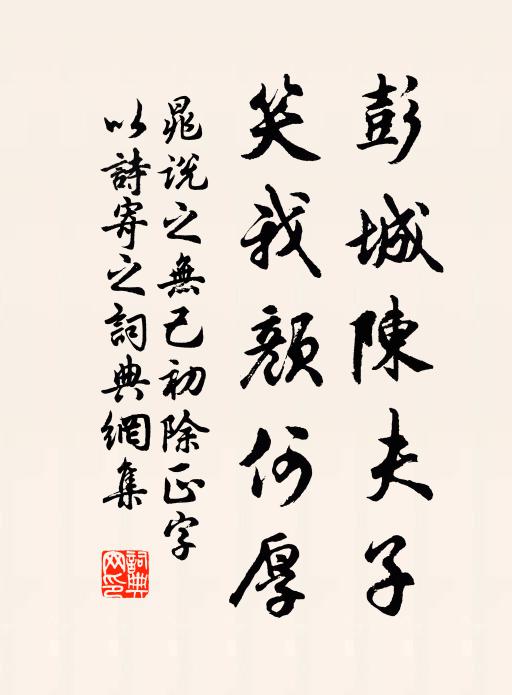 彭城陳夫子
笑我顏何厚
晁說之無己初除正字
以詩寄之詞典網集
詞典
网印